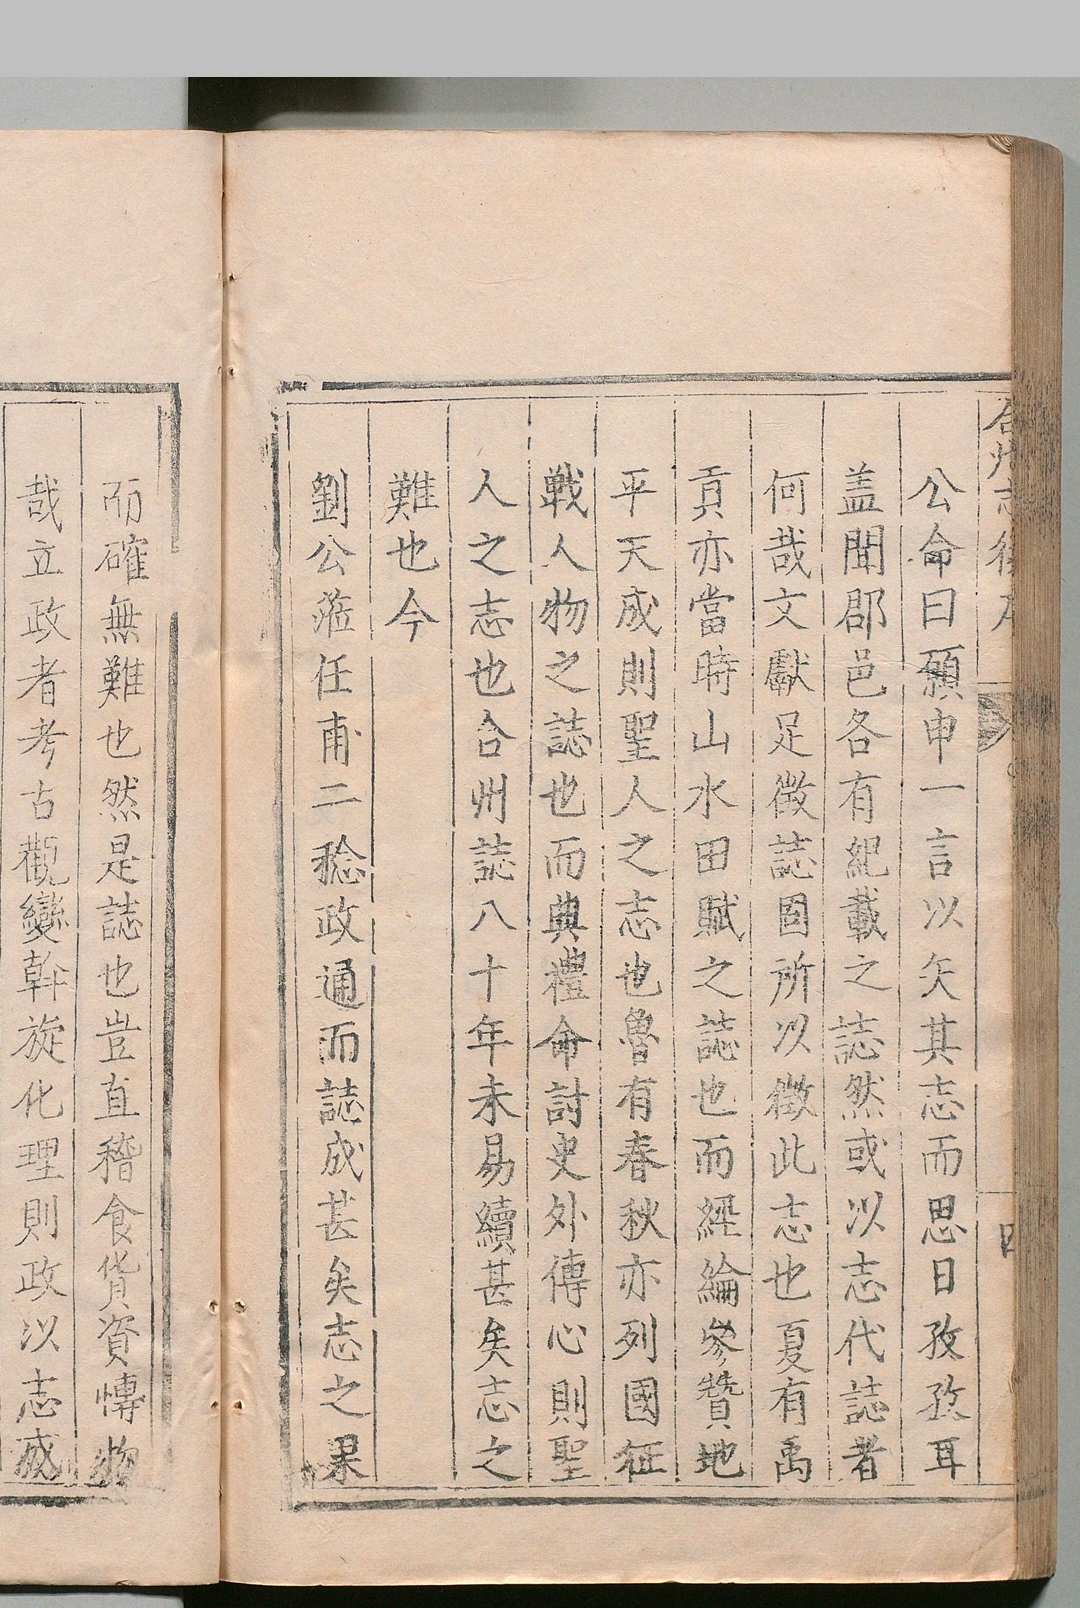 合州志後序
四
公命曰願申一言以矢其志而思日孜孜耳
盖聞郡邑各有紀載之誌然或以志代誌者
何哉文獻足徵誌固所以徵此志也夏有禹
貢亦當時山水田賦之誌也而經綸參贊地
平天成則聖人之志也魯有春秋亦列國征
戰人物之誌也而典禮命討史外傳心則聖
人之志也合州誌八十年未易續甚矣志之
難也今
劉公蒞任甫二稔政通而誌成甚矣志之果
而確無難也然是誌也豈直稽食貨資愽物
哉立政者考古觀變斡旋化理則政以志成